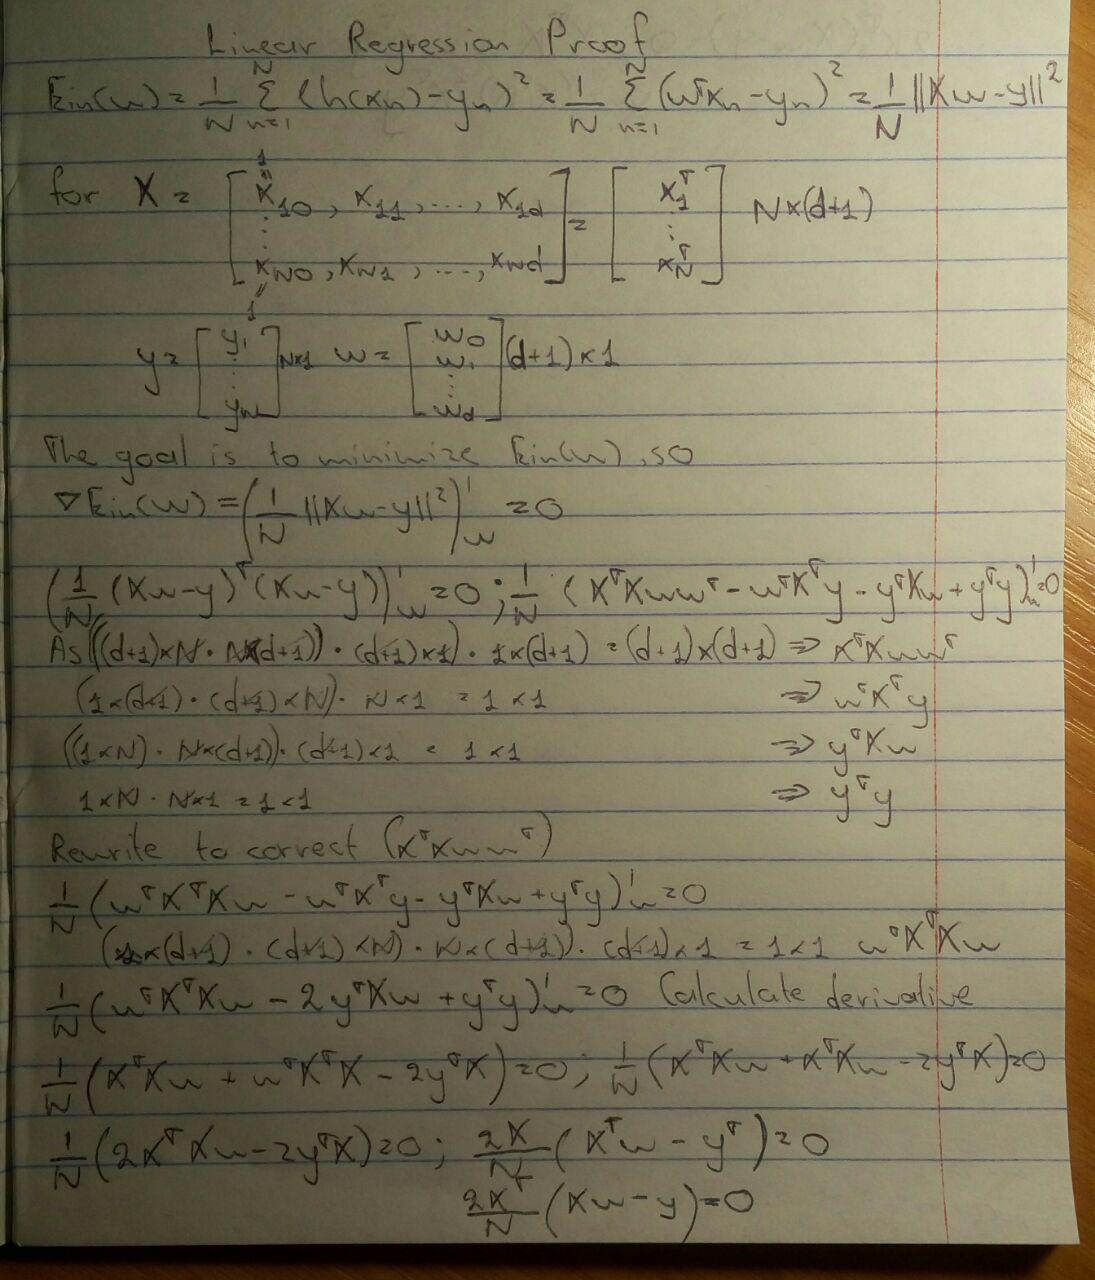 Linear Regression Proof
Ein(w) = 1/N Σ_{n=1}^{N} (h(xn) - yn)² = 1/N Σ_{n=1}^{N} (wᵀxn - yn)² = 1/N ||Xw - y||²
1
for X = [x10, x11, ..., x1d ⋮ xN0, xN1, ..., xNd] = [x1ᵀ ⋮ xNᵀ] N×(d+1)
1
y = [y1 ⋮ yN] N×1 w = [w0 w1 ⋮ wd] (d+1)×1
The goal is to minimize Ein(w), so
∇Ein(w) = (1/N ||Xw - y||²)'w = 0
(1/N (Xw-y)ᵀ(Xw-y))'w = 0; 1/N (XᵀXwwᵀ - wᵀXᵀy - yᵀXw + yᵀy)'w = 0
As ((d+1)×N · N×(d+1)) · (d+1)×1) · 1×(d+1) = (d+1)×(d+1) => XᵀXwwᵀ
(1×(d+1) · (d+1)×N) · N×1 = 1×1 => wᵀXᵀy
((1×N) · N×(d+1)) · (d+1)×1 = 1×1 => yᵀXw
1×N · N×1 = 1×1 => yᵀy
Rewrite to correct (XᵀXwwᵀ)
1/N (wᵀXᵀXw - wᵀXᵀy - yᵀXw + yᵀy)'w = 0
(1×(d+1) · (d+1)×N) · N×(d+1)) · (d+1)×1 = 1×1 wᵀXᵀXw
1/N (wᵀXᵀXw - 2yᵀXw + yᵀy)'w = 0 Calculate derivative
1/N (XᵀXw + wᵀXᵀX - 2yᵀX) = 0; 1/N (XᵀXw + XᵀXw - 2yᵀX) = 0
1/N (2XᵀXw - 2yᵀX) = 0; 2X/N (Xᵀw - yᵀ) = 0
2Xᵀ/N (Xw - y) = 0